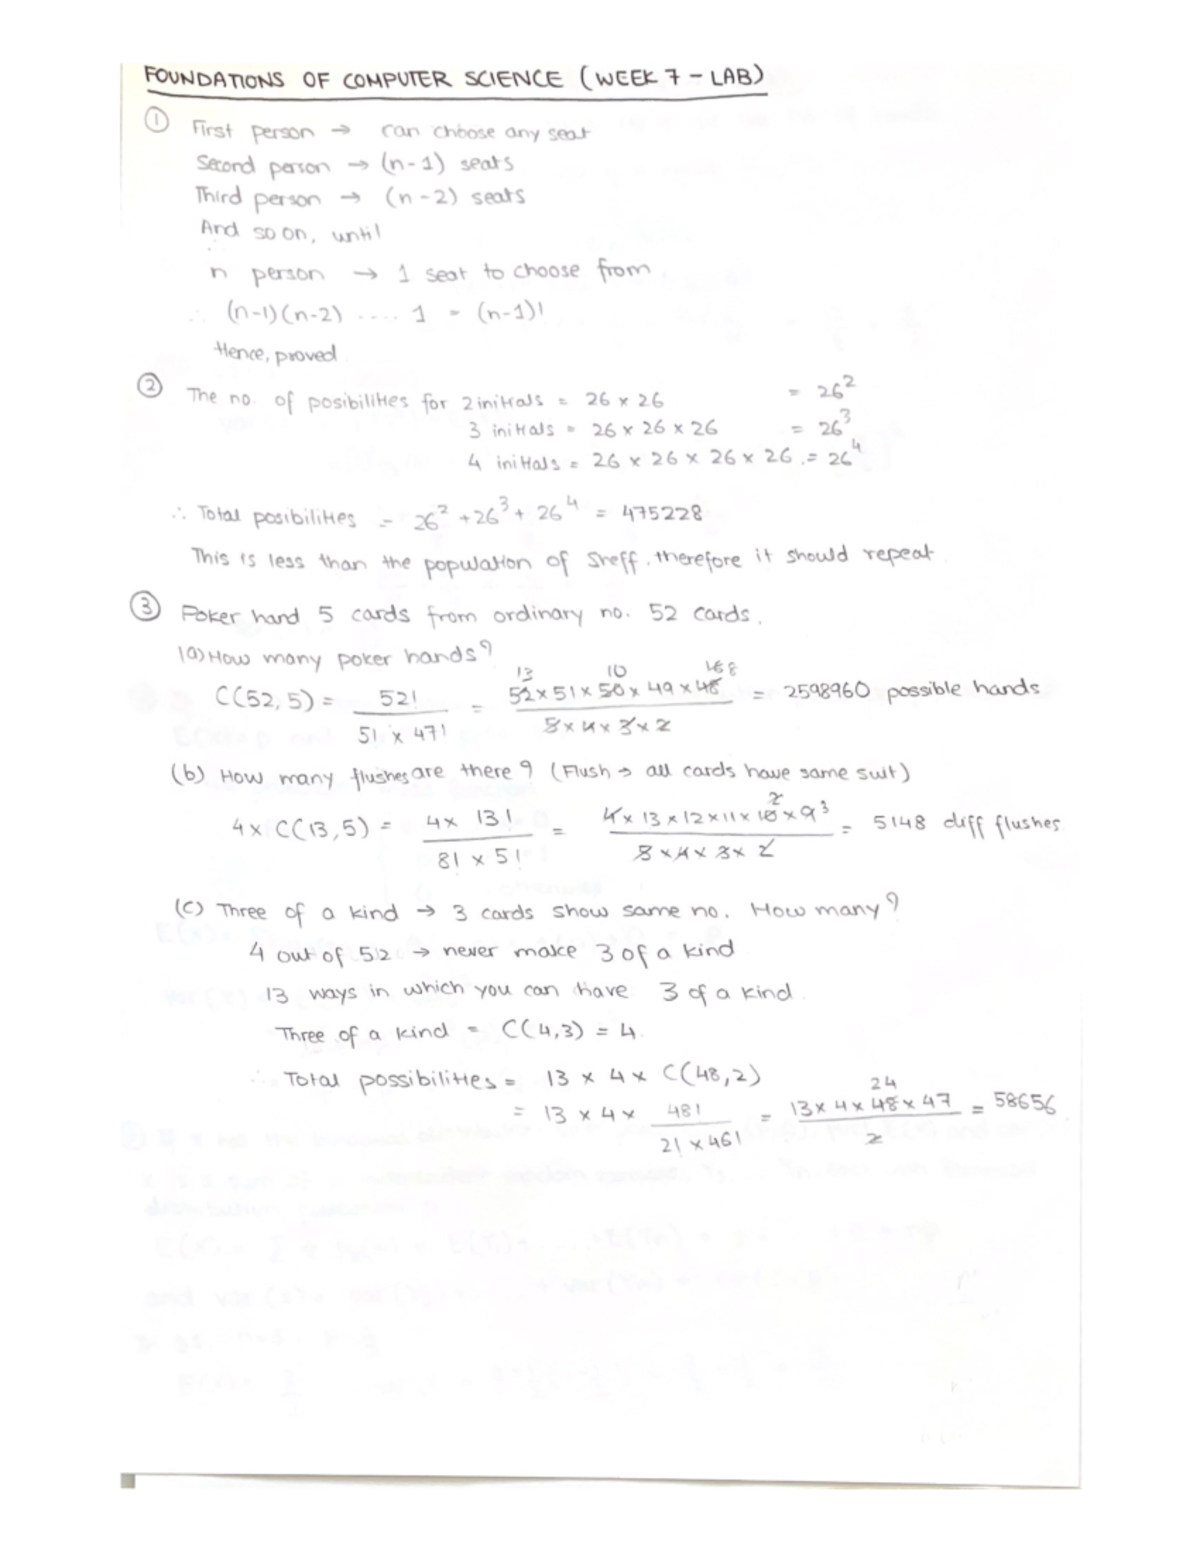 FOUNDATIONS OF COMPUTER SCIENCE (WEEK 7 - LAB)
① First person → can choose any seat
Second person → (n-1) seats
Third person → (n-2) seats
And so on, until
n person → 1 seat to choose from
∴ (n-1)(n-2) .... 1 = (n-1)!
Hence, proved
② The no. of posibilities for 2 initials = 26 x 26 = 26²
3 initials = 26 x 26 x 26 = 26³
4 initials = 26 x 26 x 26 x 26 . = 26⁴
∴ Total posibilities = 26² + 26³ + 26⁴ = 475228
This is less than the population of Sheff, therefore it should repeat
③ Poker hand 5 cards from ordinary no. 52 cards.
(a) How many poker hands?
13 10 8
C(52,5) = 52! = 52 x 51 x 50 x 49 x 48 = 2598960 possible hands
5! x 47! 5 x 4 x 3 x 2
(b) How many flushes are there? (Flush → all cards have same suit)
2 3
4 x C(13,5) = 4 x 13! = 4 x 13 x 12 x 11 x 10 x 9 = 5148 diff flushes
8! x 5! 5 x 4 x 3 x 2
(c) Three of a kind → 3 cards show same no. How many?
4 out of 52 → never make 3 of a kind
13 ways in which you can have 3 of a kind.
Three of a kind = C(4,3) = 4.
∴ Total possibilities = 13 x 4 x C(48,2)
24
= 13 x 4 x 48! = 13 x 4 x 48 x 47 = 58656
2! x 46! 2